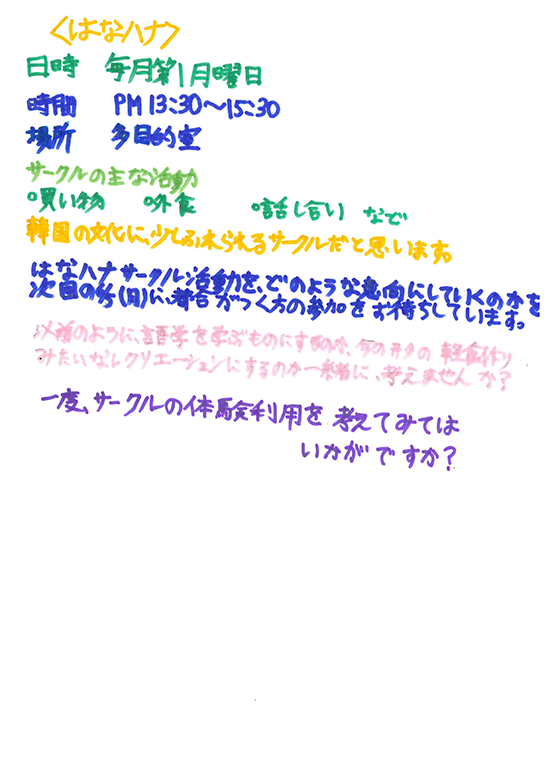 〈はなハナ〉
日時 毎月第1月曜日
時間 PM 13:30〜15:30
場所 多目的室
サークルの主な活動
○買い物 ○外食 ○話し合い など
韓国の文化に、少しふれられるサークルだと思います。
はなハナサークル活動を、どのような意向にしていくのかを
次回の6/5(月)に、都合がつく方の参加をお待ちしています。
以前のように、語学を学ぶものにするのか、今の形の 軽食作り
みたいなレクリエーションにするのか一緒に、考えませんか?
一度、サークルの体験利用を 考えてみては
いかがですか?